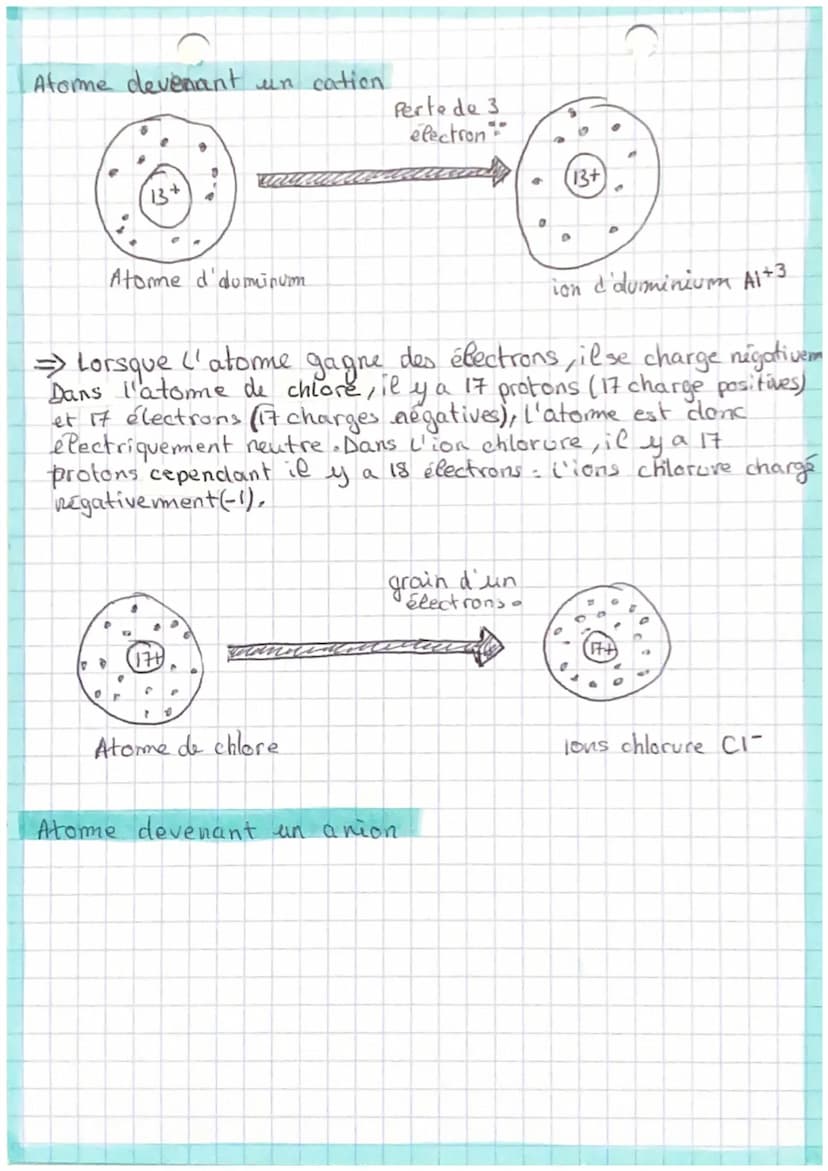 Atome devenant un cation
Perte de 3
électron
13+
13+
Atome d'aluminum
ion d'aluminium Al+3
=> Lorsque l'atome gagne des électrons, il se charge négativem
Dans l'atome de chlore, il y a 17 protons (17 charge positives)
et 17 électrons (17 charges négatives), l'atome est donc
électriquement neutre. Dans l'ion chlorure, il y a 17
protons cependant il y a 18 électrons : l'ions chlorure chargé
négativement (-1).
grain d'un
électrons.
17+
17+
Atome de chlore
Ions chlorure Cl-
Atome devenant un anion